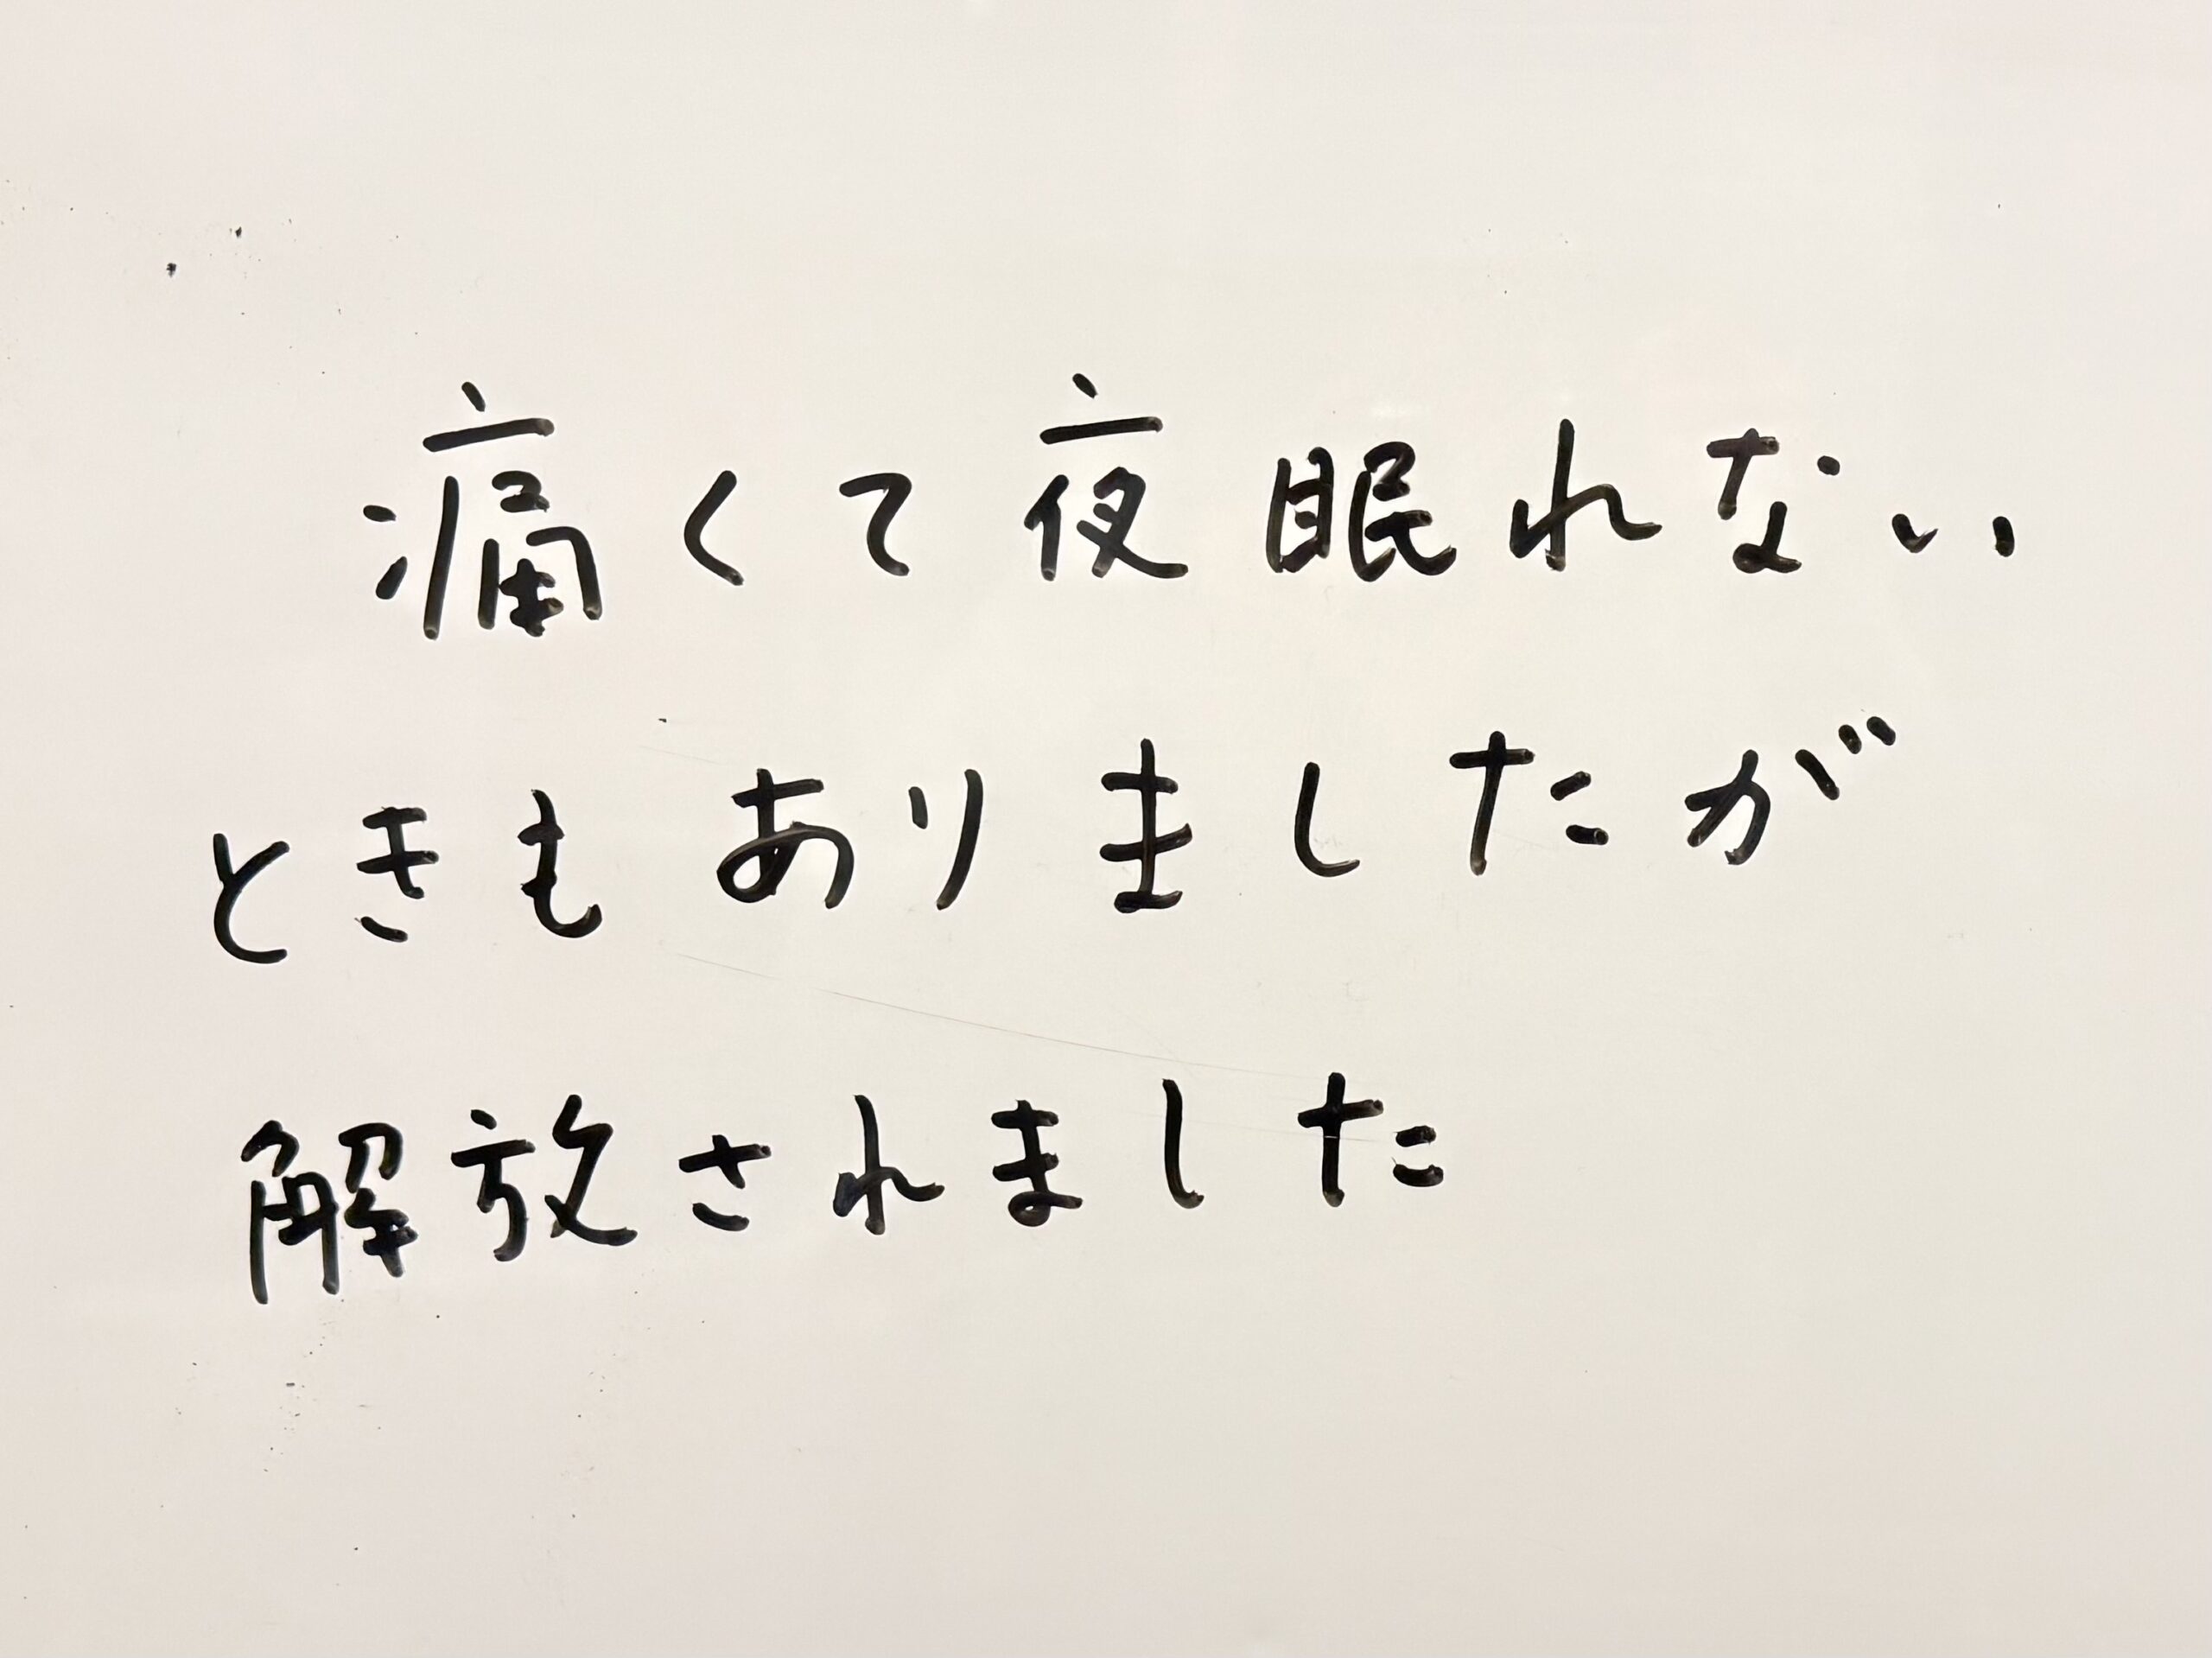 痛くて夜眠れない
ときもありましたが
解放されました